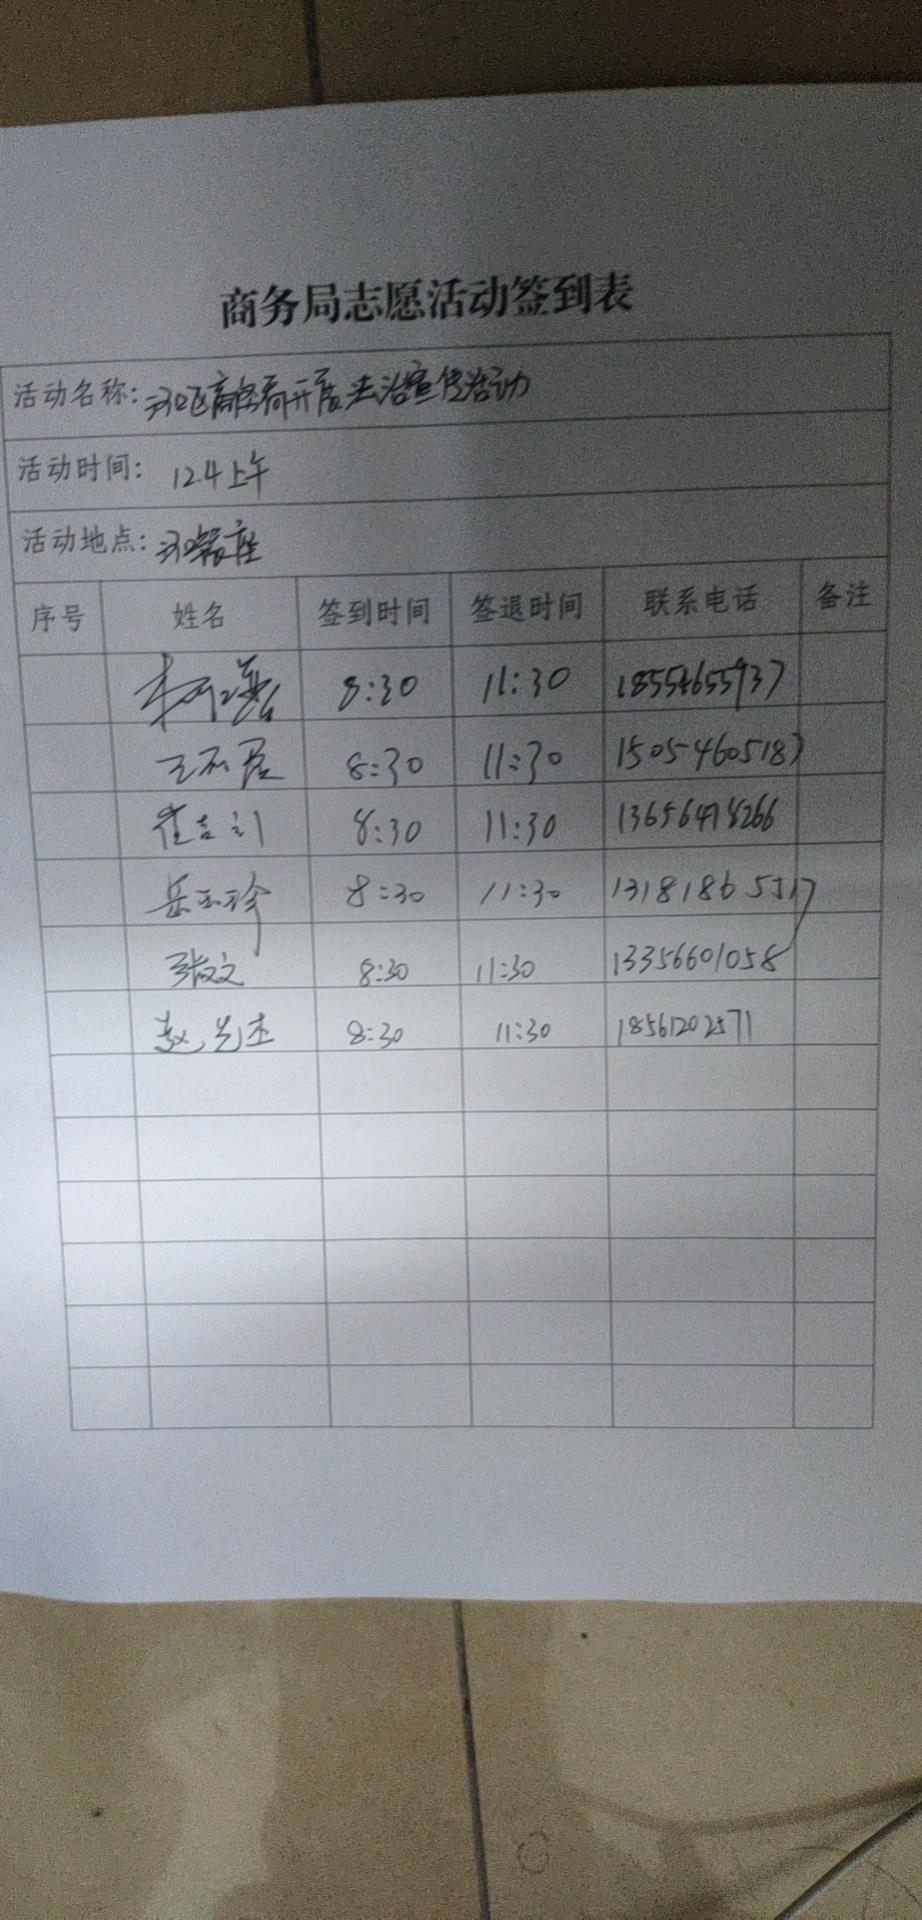 商务局志愿活动签到表
活动名称: 河口区商务局开展法治宣传活动
活动时间: 12.4上午
活动地点:
序号 姓名 签到时间 签退时间 联系电话 备注
8:30 11:30 18554655937
8:30 11:30 15054605187
8:30 11:30 13656478266
岳玉珍 8:30 11:30 13181865517
张文 8:30 11:30 13356601058
赵光杰 8:30 11:30 18561202571